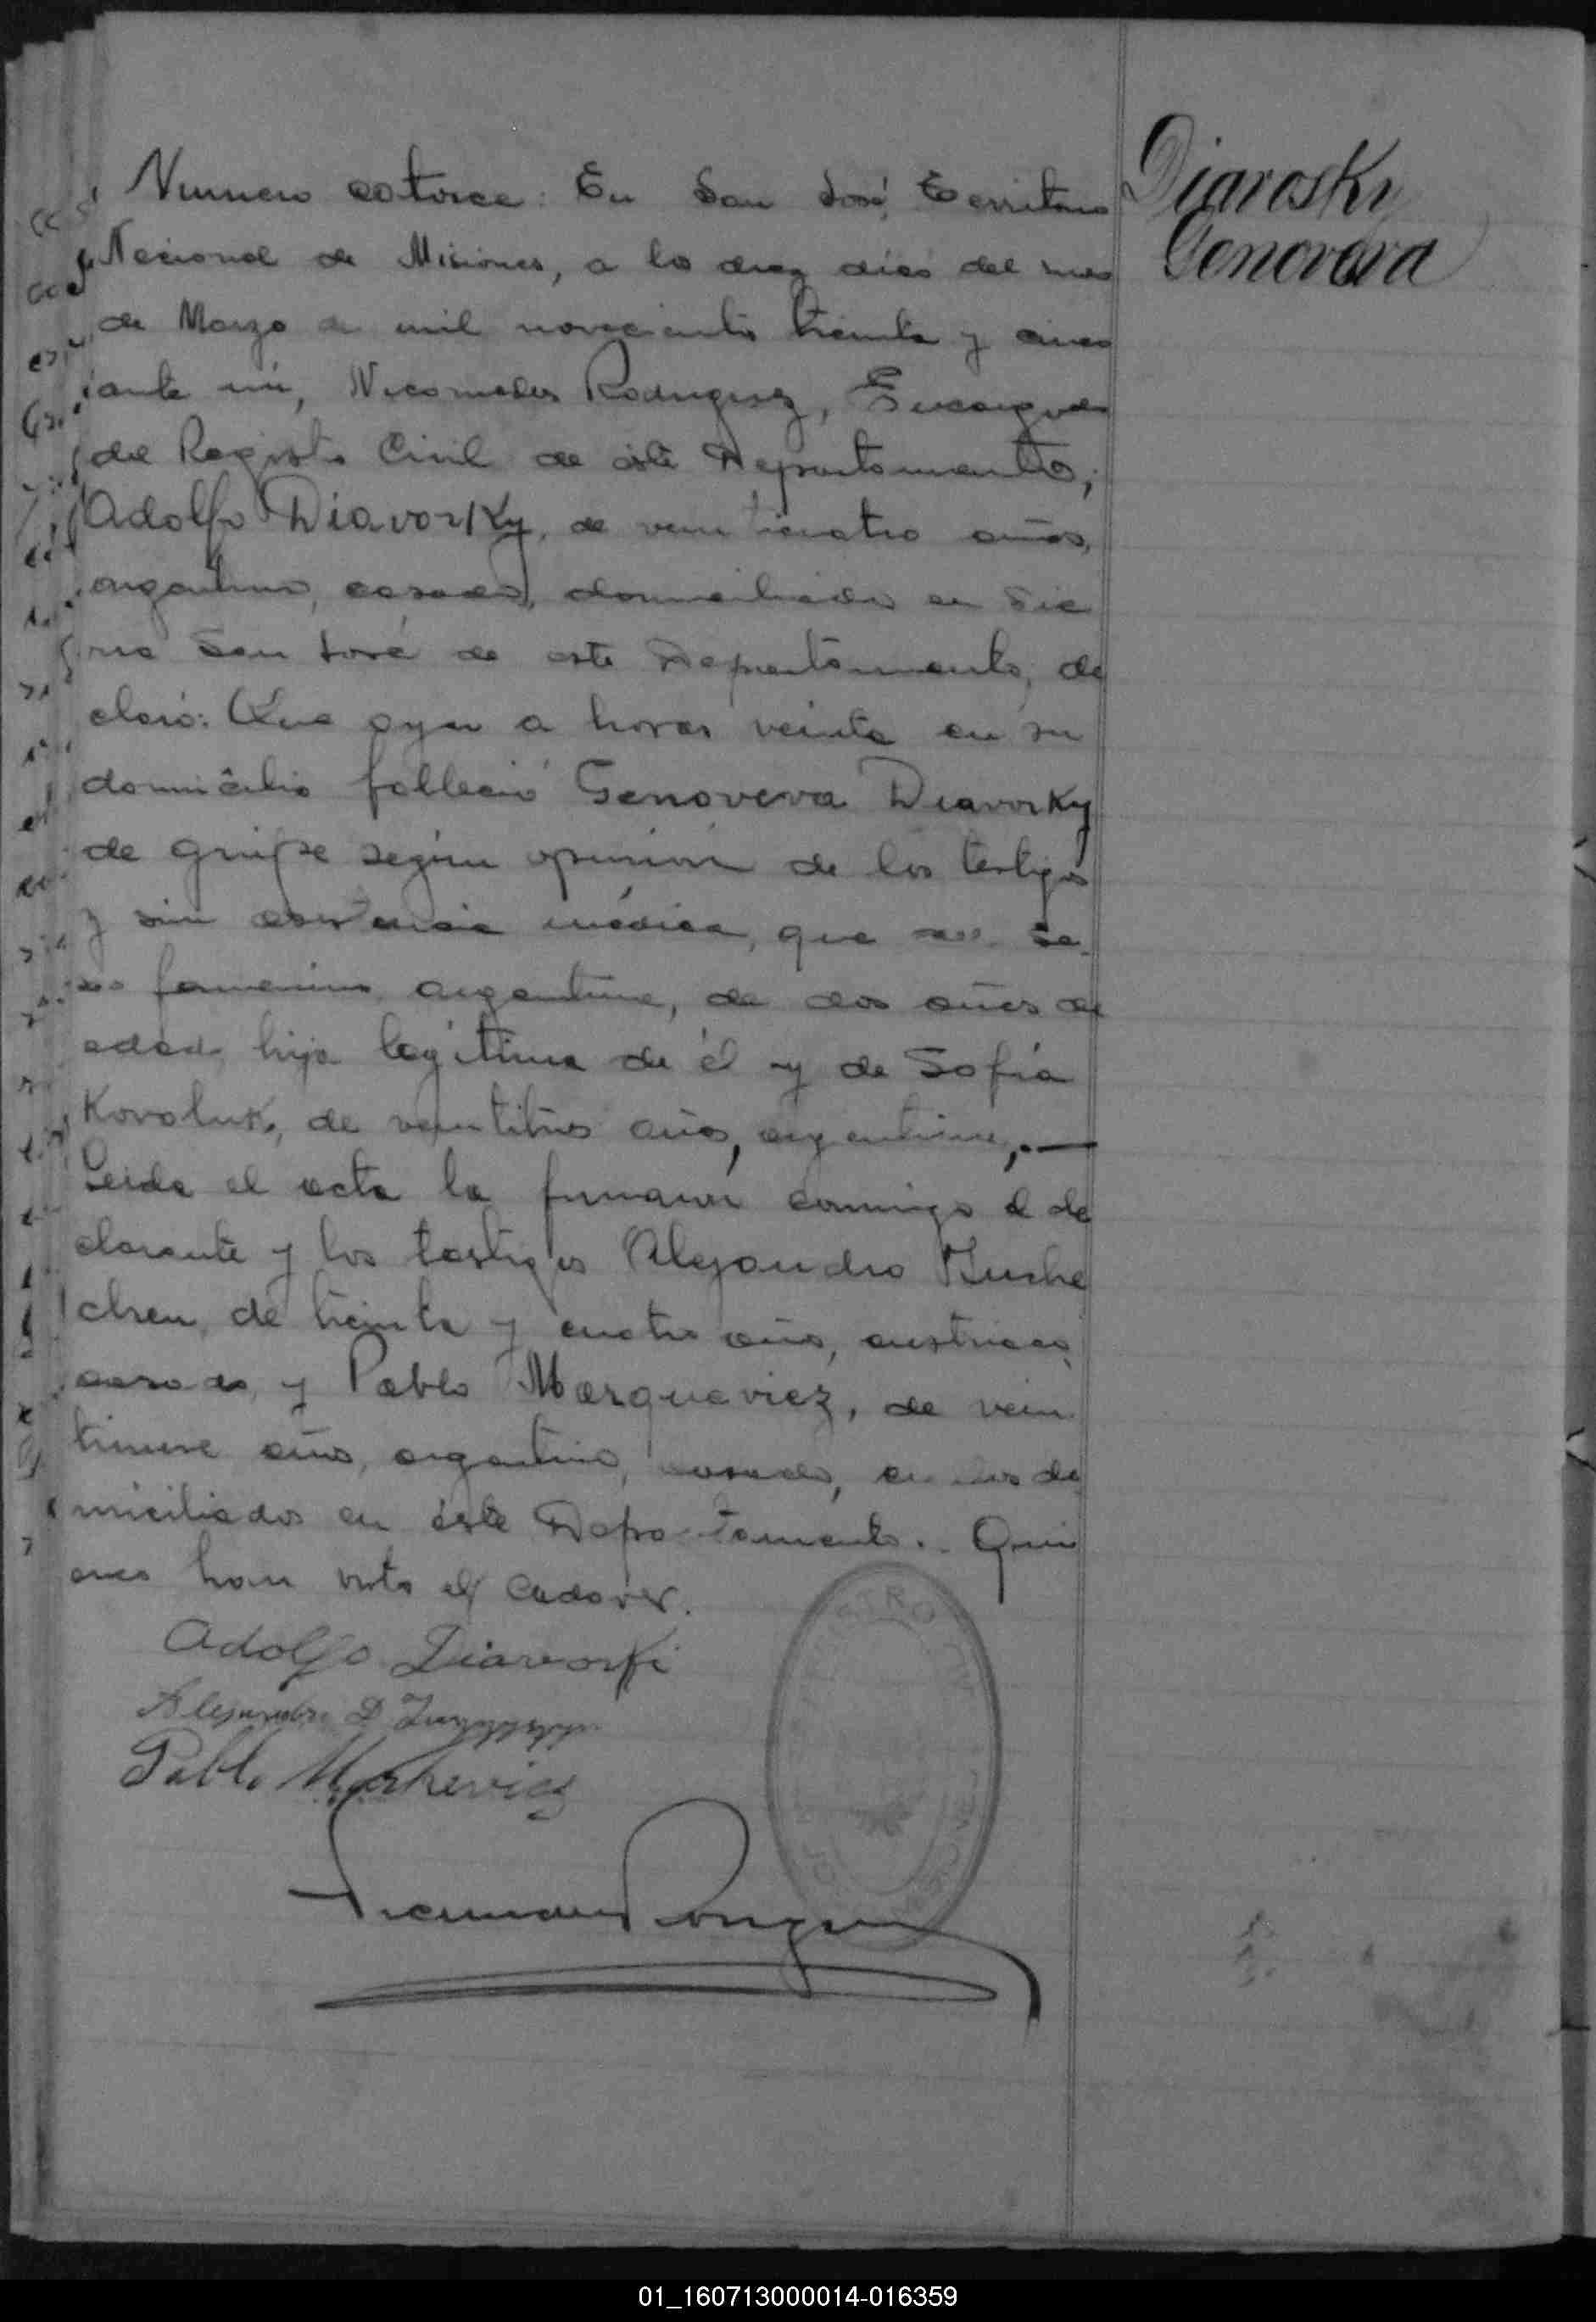 Diavosky
Genoveva
Numero catorce: En San José, Territorio
Nacional de Misiones, a los diez dias del mes
de Marzo de mil novecientos treinta y cinco
ante mi, Nicomedes Rodriguez, Encargado
del Registro Civil de éste Departamento,
Adolfo Diavorsky, de veinticuatro años,
argentino, casado, domiciliado en
San José de este Departamento, de
claró: Que ayer a horas veinte en su
domicilio falleció Genoveva Diavorsky
de gripe según opinion de los testigos
y sin asistencia médica, que era de se
xo femenino argentina, de dos años de
edad, hija legitima de él y de Sofia
Kovoluk, de veintitres años, argentina,.—
Leida el acta la firmaron conmigo el de
clarante y los testigos Alejandro Zushe
chen, de treinta y cuatro años, austriaco,
casado, y Pablo Marqueviez, de vein
tinueve años, argentino, casado, ambos do
miciliados en éste Departamento.- Qui
enes han visto el cadaver.
Adolfo Diavorski
Alejandro D
Pablo Markevicz
01_160713000014-016359